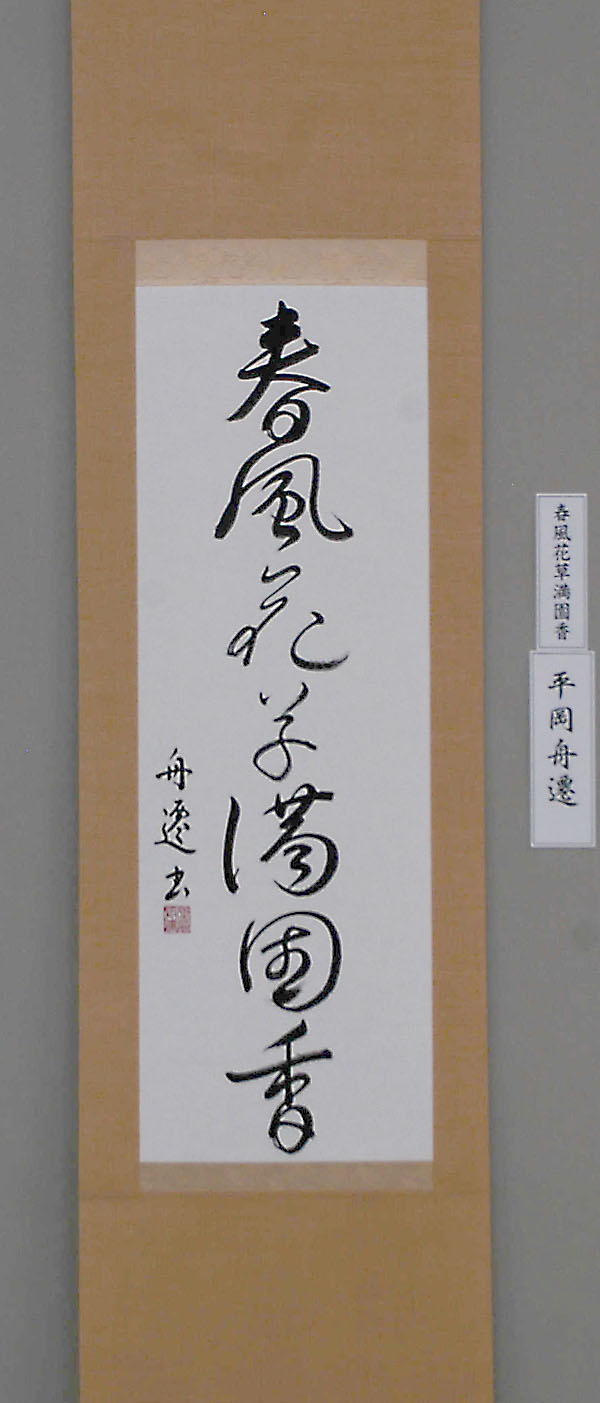 春風花草満園香
舟遷書
春風花草満園香
平岡舟遷